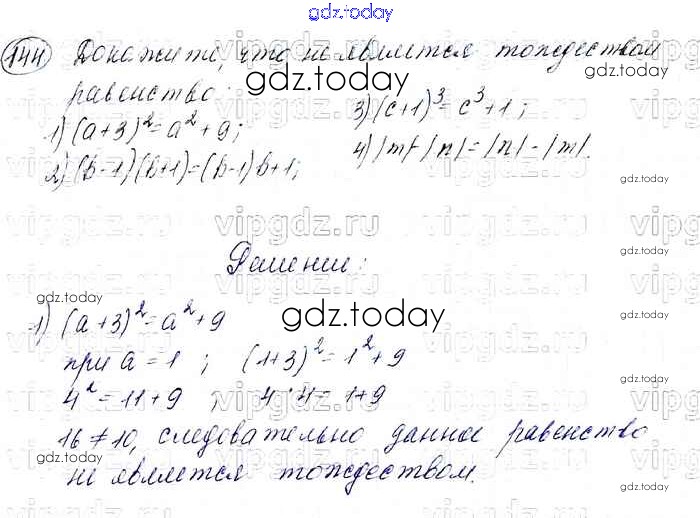 gdz.today
144 Докажите, что не является тождеством
gdz.today gdz.today
равенство:
1) (a+3)²=a²+9; 3) (c+1)³=c³+1;
2) (b-1)(b+1)=(b-1)b+1; 4) |m|-|n|=|n|-|m|.
gdz.today
vipgdz.ru vipgdz.ru vipgdz.ru
Решение:
gdz.today
1) (a+3)²=a²+9
gdz.today
при a=1; (1+3)²=1²+9
4²=11+9; 4·4=1+9
gdz.today
16≠10, следовательно данное равенство
gdz.today gdz.today
не является тождеством.
gdz.today